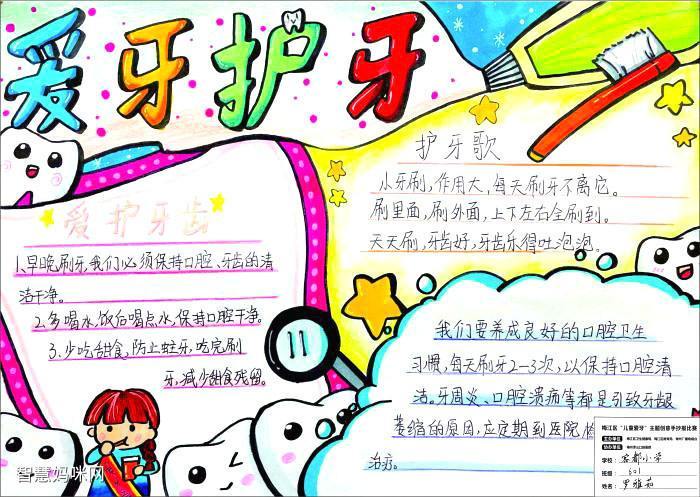 爱牙护牙
爱护牙齿
1、早晚刷牙,我们必须保持口腔、牙齿的清
洁干净。
2、多喝水,饭后喝点水,保持口腔干净。
3、少吃甜食,防止蛀牙,吃完刷
牙,减少甜食残留。
护牙歌
小牙刷,作用大,每天刷牙不离它。
刷里面,刷外面,上下左右全刷到。
天天刷,牙齿好,牙齿乐得吐泡泡。
我们要养成良好的口腔卫生
习惯,每天刷牙2-3次,以保持口腔清
洁。牙周炎、口腔溃疡等都是引致牙龈
萎缩的原因,应定期到医院检
治疗。
梅江区“儿童爱牙”主题创意手抄报比赛
主办单位
协办单位
学校:客都小学
班级:601
姓名:罗雅茹
智慧妈咪网